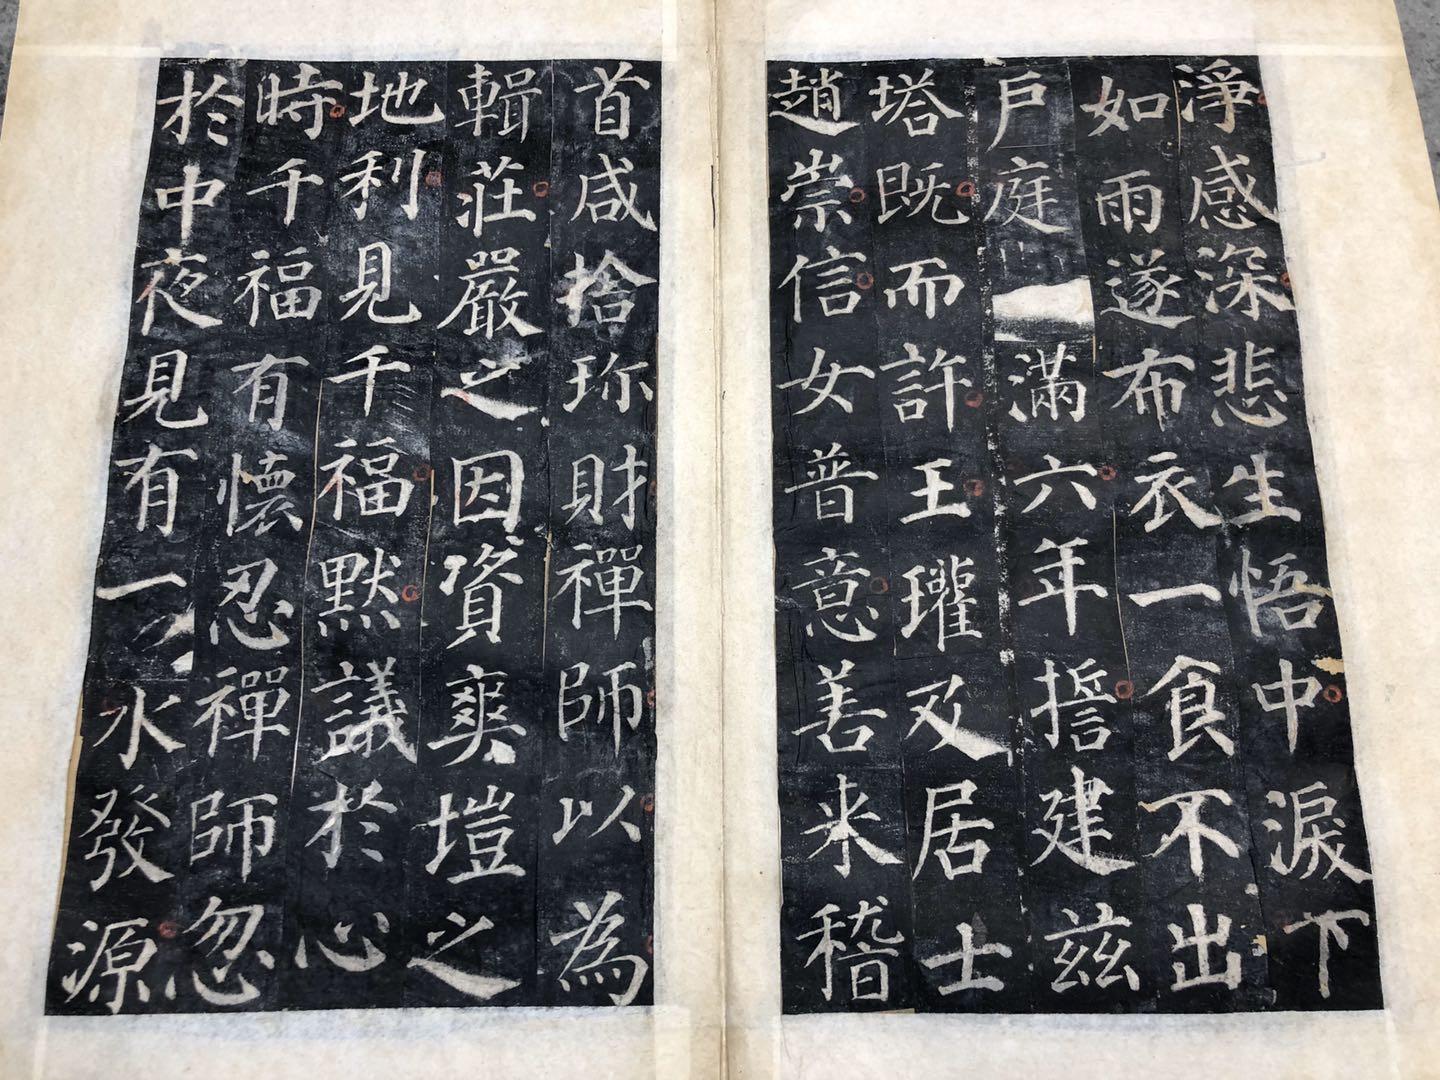 淨感深悲生悟中淚下
如雨遂布衣一食不出
戶庭滿六年誓建茲
塔既而許王瓘及居士
趙崇信女普意善来稽
首咸捨珎財禪師以為
輯莊嚴之因資爽塏之
地利見千福默議於心
時千福有懷忍禪師忽
於中夜見有一水發源